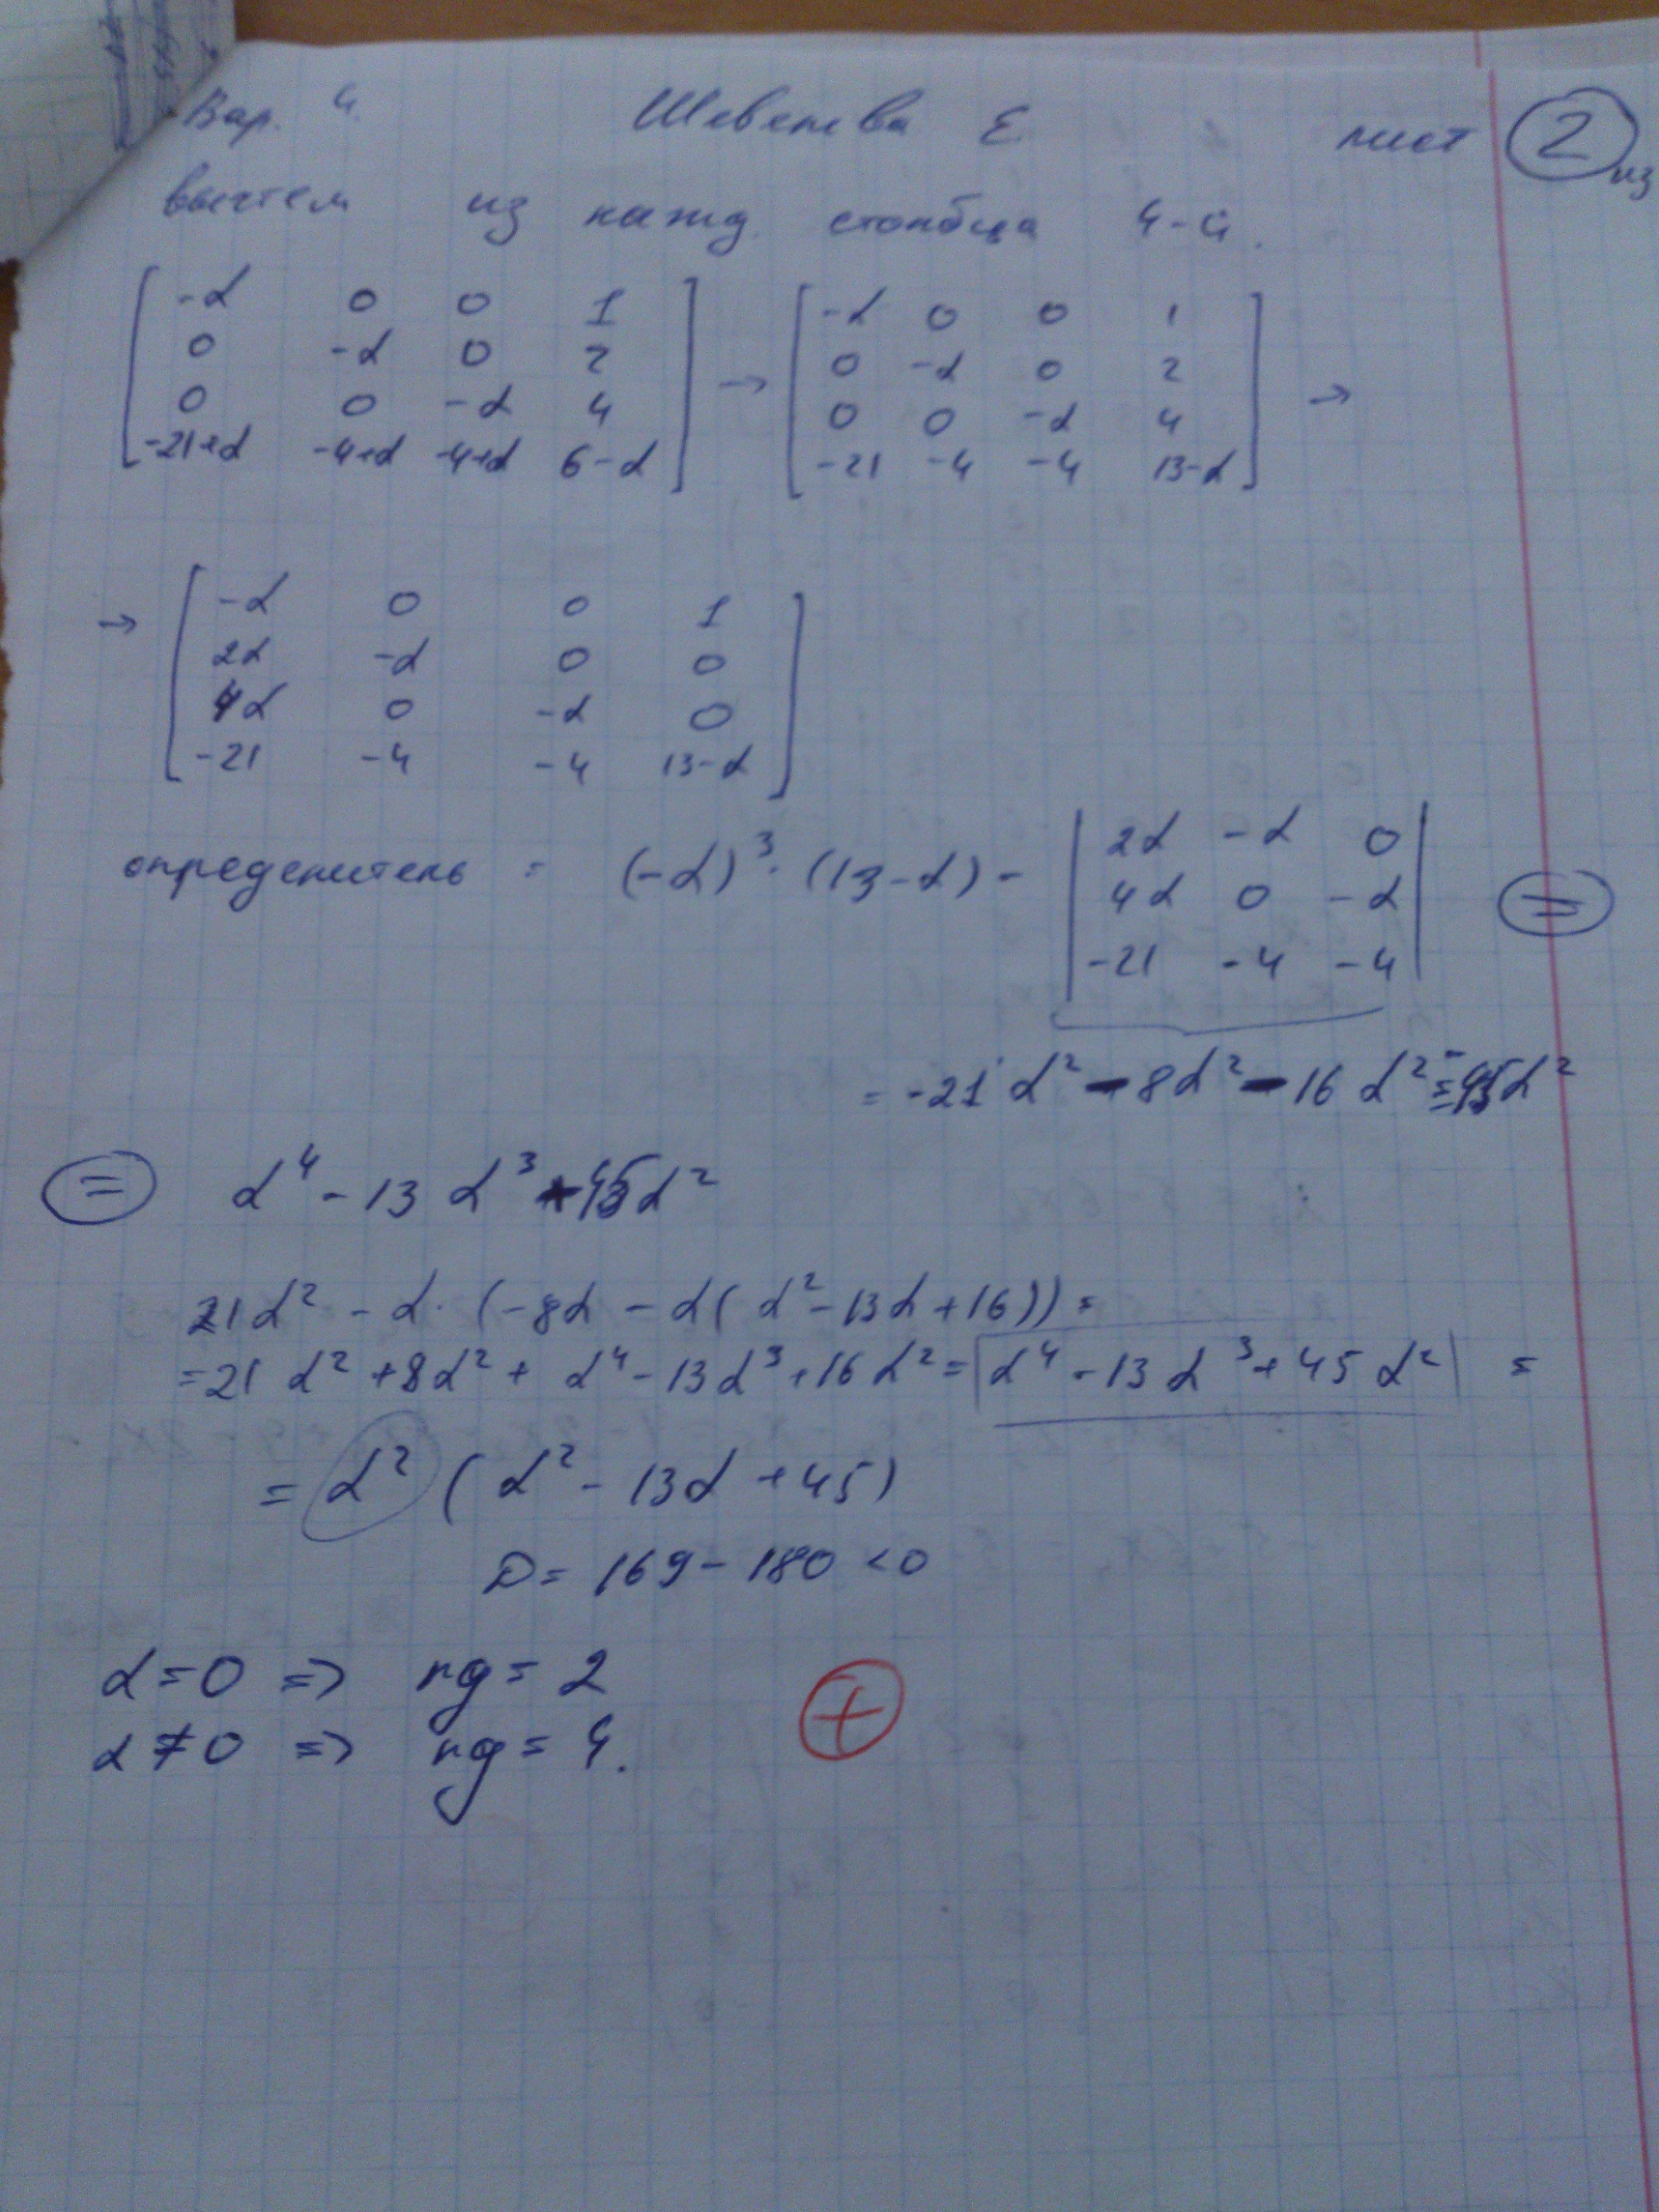 Вар. 4. Шевелева Е лист 2 из
вычтем из кажд. столбца 4-й.
-α 0 0 1 → -α 0 0 1 →
0 -α 0 2 0 -α 0 2
0 0 -α 4 0 0 -α 4
-21+α -4+α -4+α 6-α -21 -4 -4 13-α
→ -α 0 0 1
2α -α 0 0
4α 0 -α 0
-21 -4 -4 13-α
определитель = (-α)³·(13-α) - | 2α -α 0 | =
4α 0 -α
-21 -4 -4
= -21α² - 8α² - 16α² = -45α²
= α⁴ - 13α³ + 45α²
21α² - α·(-8α - α(α² - 13α + 16)) =
= 21α² + 8α² + α⁴ - 13α³ + 16α² = α⁴ - 13α³ + 45α² =
= α² (α² - 13α + 45)
D = 169 - 180 < 0
α = 0 => rg = 2
α ≠ 0 => rg = 4.
+